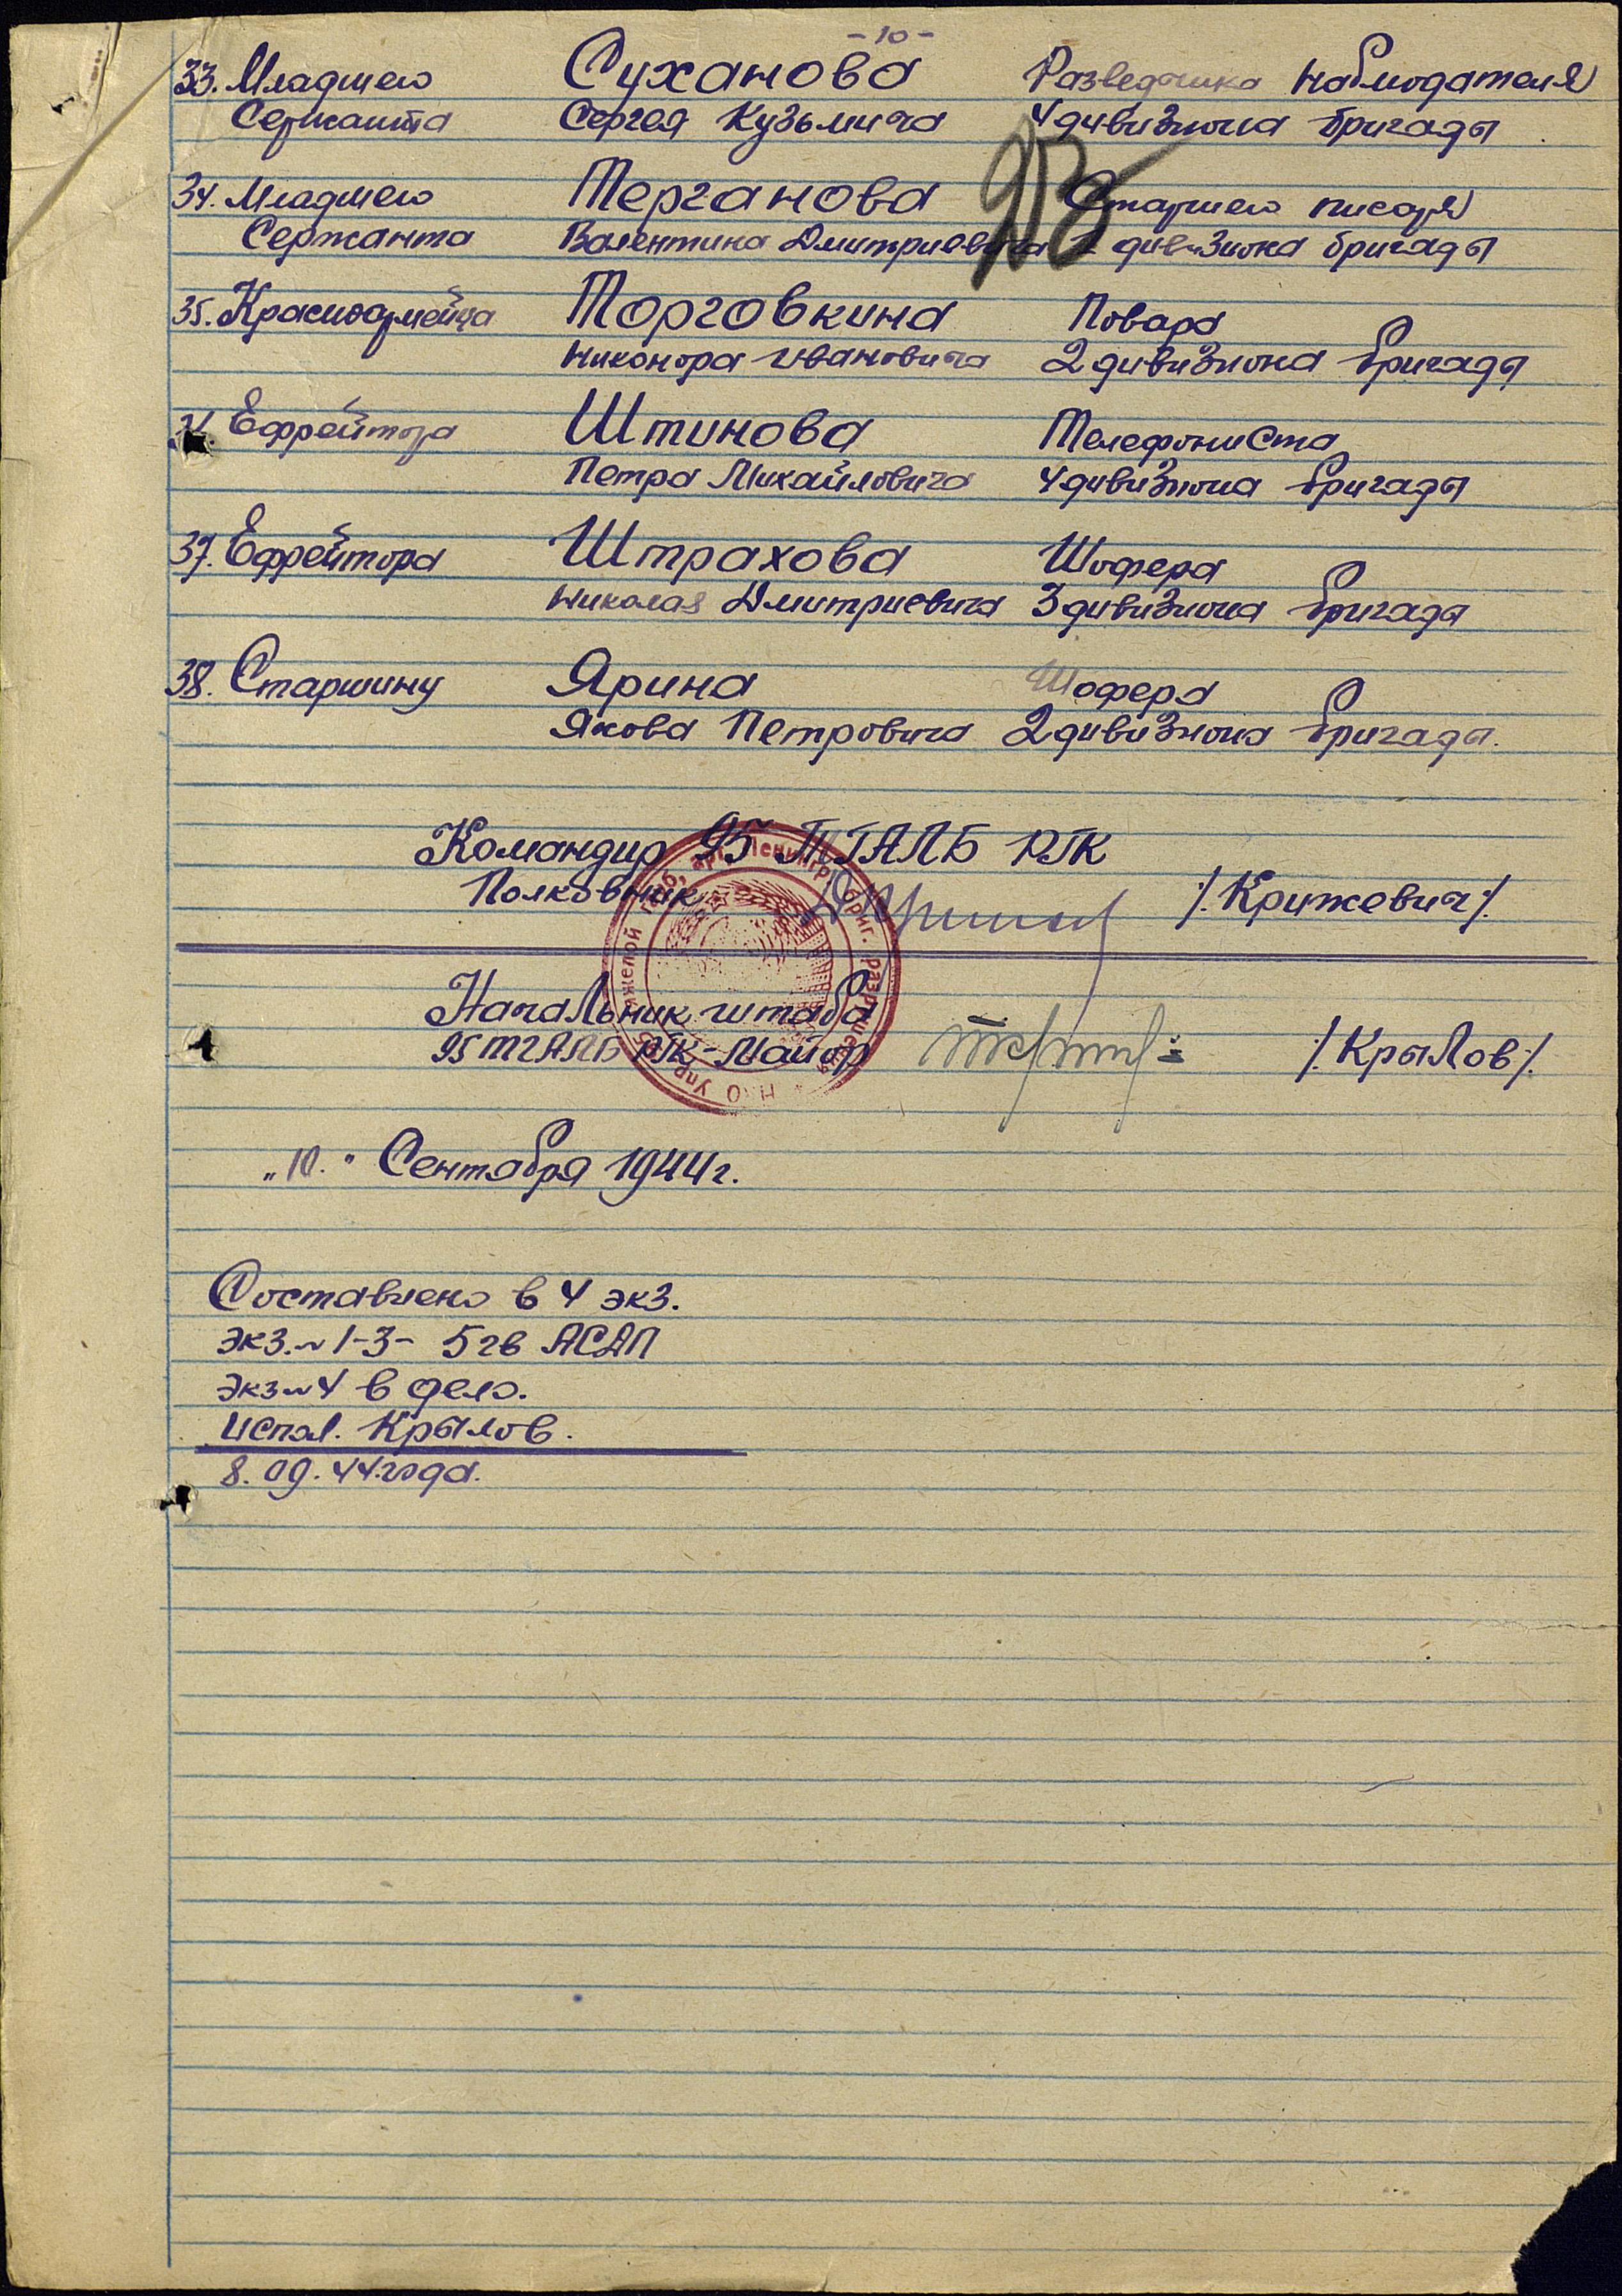 -10-
33. Младшего Суханова Разведчика наблюдателя
Сержанта Сергея Кузьмича 4 дивизиона бригады
34. Младшего Терганова Старшего писаря
Сержанта Валентина Дмитриевича дивизиона бригады
35. Красноармейца Торговкина Повара
Никонора Ивановича 2 дивизиона бригады
Ефрейтора Штинова Телефониста
Петра Михайловича 4 дивизиона бригады
37. Ефрейтора Штрахова Шофера
Николая Дмитриевича 3 дивизиона бригады
38. Старшину Ярина Шофера
Якова Петровича 2 дивизиона бригады.
Командир 95 ТГАЛБ РГК
Полковник /.Крижевич/.
Начальник штаба
95 ТГАЛБ РГК-Майор /.Крылов/.
„10." Сентября 1944г.
Составлено в 4 экз.
экз.№1-3- 5 гв АСАП
экз№4 в дело.
Испол. Крылов.
8.09.44 года.